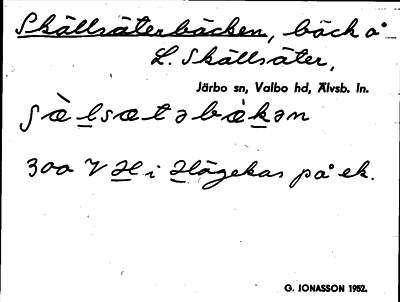 Skällsäterbäcken, bäck å
L. Skällsäter,
Järbo sn, Valbo hd, Älvsb. ln.
ʃæ̀lsætəbæ̀kən
300 V H i Högekas på ek.
G. JONASSON 1952.